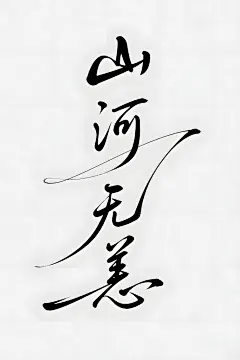 山河无恙